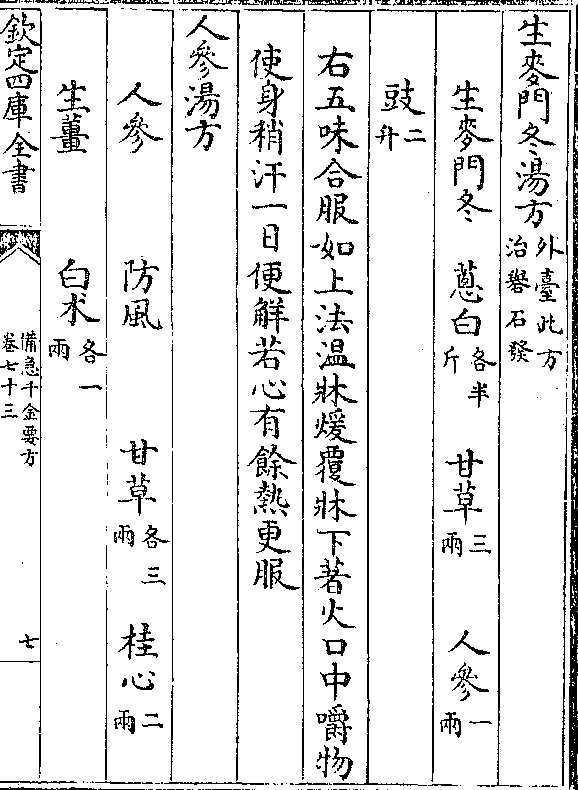 生麥門冬湯方外臺此方治礜石發
生麥門冬 蔥白各半斤 甘草三兩 人參一兩
豉二升
右五味合服如上法溫牀煖覆牀下著火口中嚼物
使身稍汗一日便解若心有餘熱更服
人參湯方
人參 防風 甘草各三兩 桂心二兩
生薑 白朮各一兩
欽定四庫全書 備急千金要方卷七十三 七